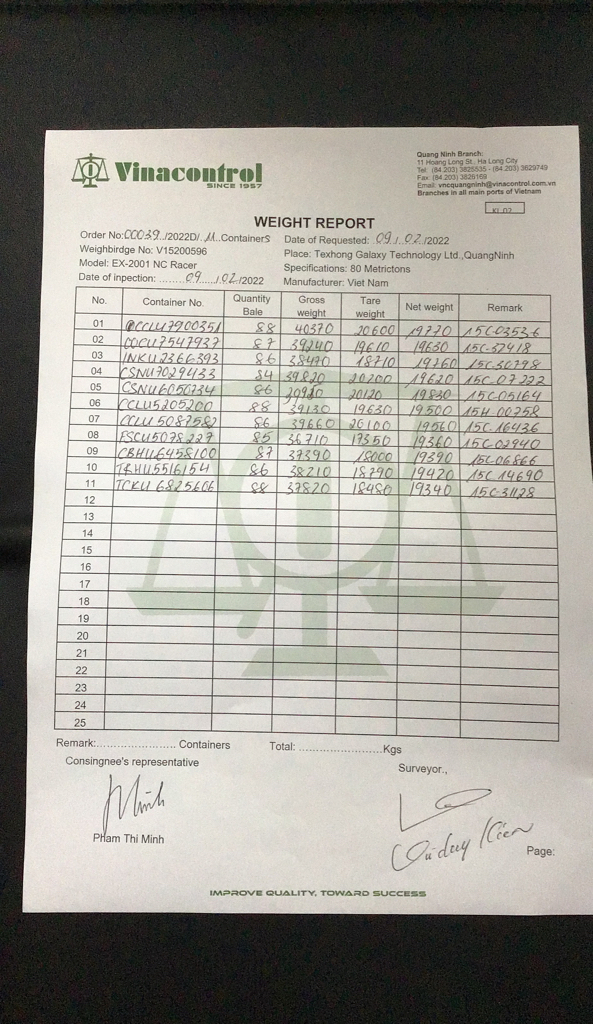 Vinacontrol
SINCE 1957
Quang Ninh Branch:
11 Hoang Long St., Ha Long City
Tel: (84.203) 3825535 - (84.203) 3629749
Fax: (84.203) 3826169
Email: vncquangninh@vinacontrol.com.vn
Branches in all main ports of Vietnam
KL 02
WEIGHT REPORT
Order No:00039../2022D/.11.ContainerS
Date of Requested: 09./.02./2022
Weighbirdge No: V15200596
Place: Texhong Galaxy Technology Ltd.,QuangNinh
Model: EX-2001 NC Racer
Specifications: 80 Metrictons
Date of inpection: .......09..../02/2022
Manufacturer: Viet Nam
No. Container No. Quantity Bale Gross weight Tare weight Net weight Remark
01 CCLU7900351 88 40370 20600 19770 15C-03536
02 COCU7547937 87 39240 19610 19630 15C-32418
03 INKU2366393 86 38470 18710 19760 15C-30798
04 CSNU7029433 84 39820 20200 19620 15C-07222
05 CSNU6050734 86 20120 19830 15C-05164
06 CCLU5205200 88 39130 19630 19500 15H-00758
07 CCLU5087582 86 39660 20100 19560 15C-16436
08 FSCU5078227 85 36710 17350 19360 15C-02940
09 CBHU6458100 87 37390 18000 19390 15C-06866
10 TRHU5516154 86 38210 18790 19420 15C-14690
11 TCKU 6825606 88 37820 18480 19340 15C-31128
12
13
14
15
16
17
18
19
20
21
22
23
24
25
Remark:........................ Containers Total: .........................Kgs
Consingnee's representative
Surveyor.,
Minh
Pham Thi Minh
Vũ duy Kiên
Page:
IMPROVE QUALITY, TOWARD SUCCESS